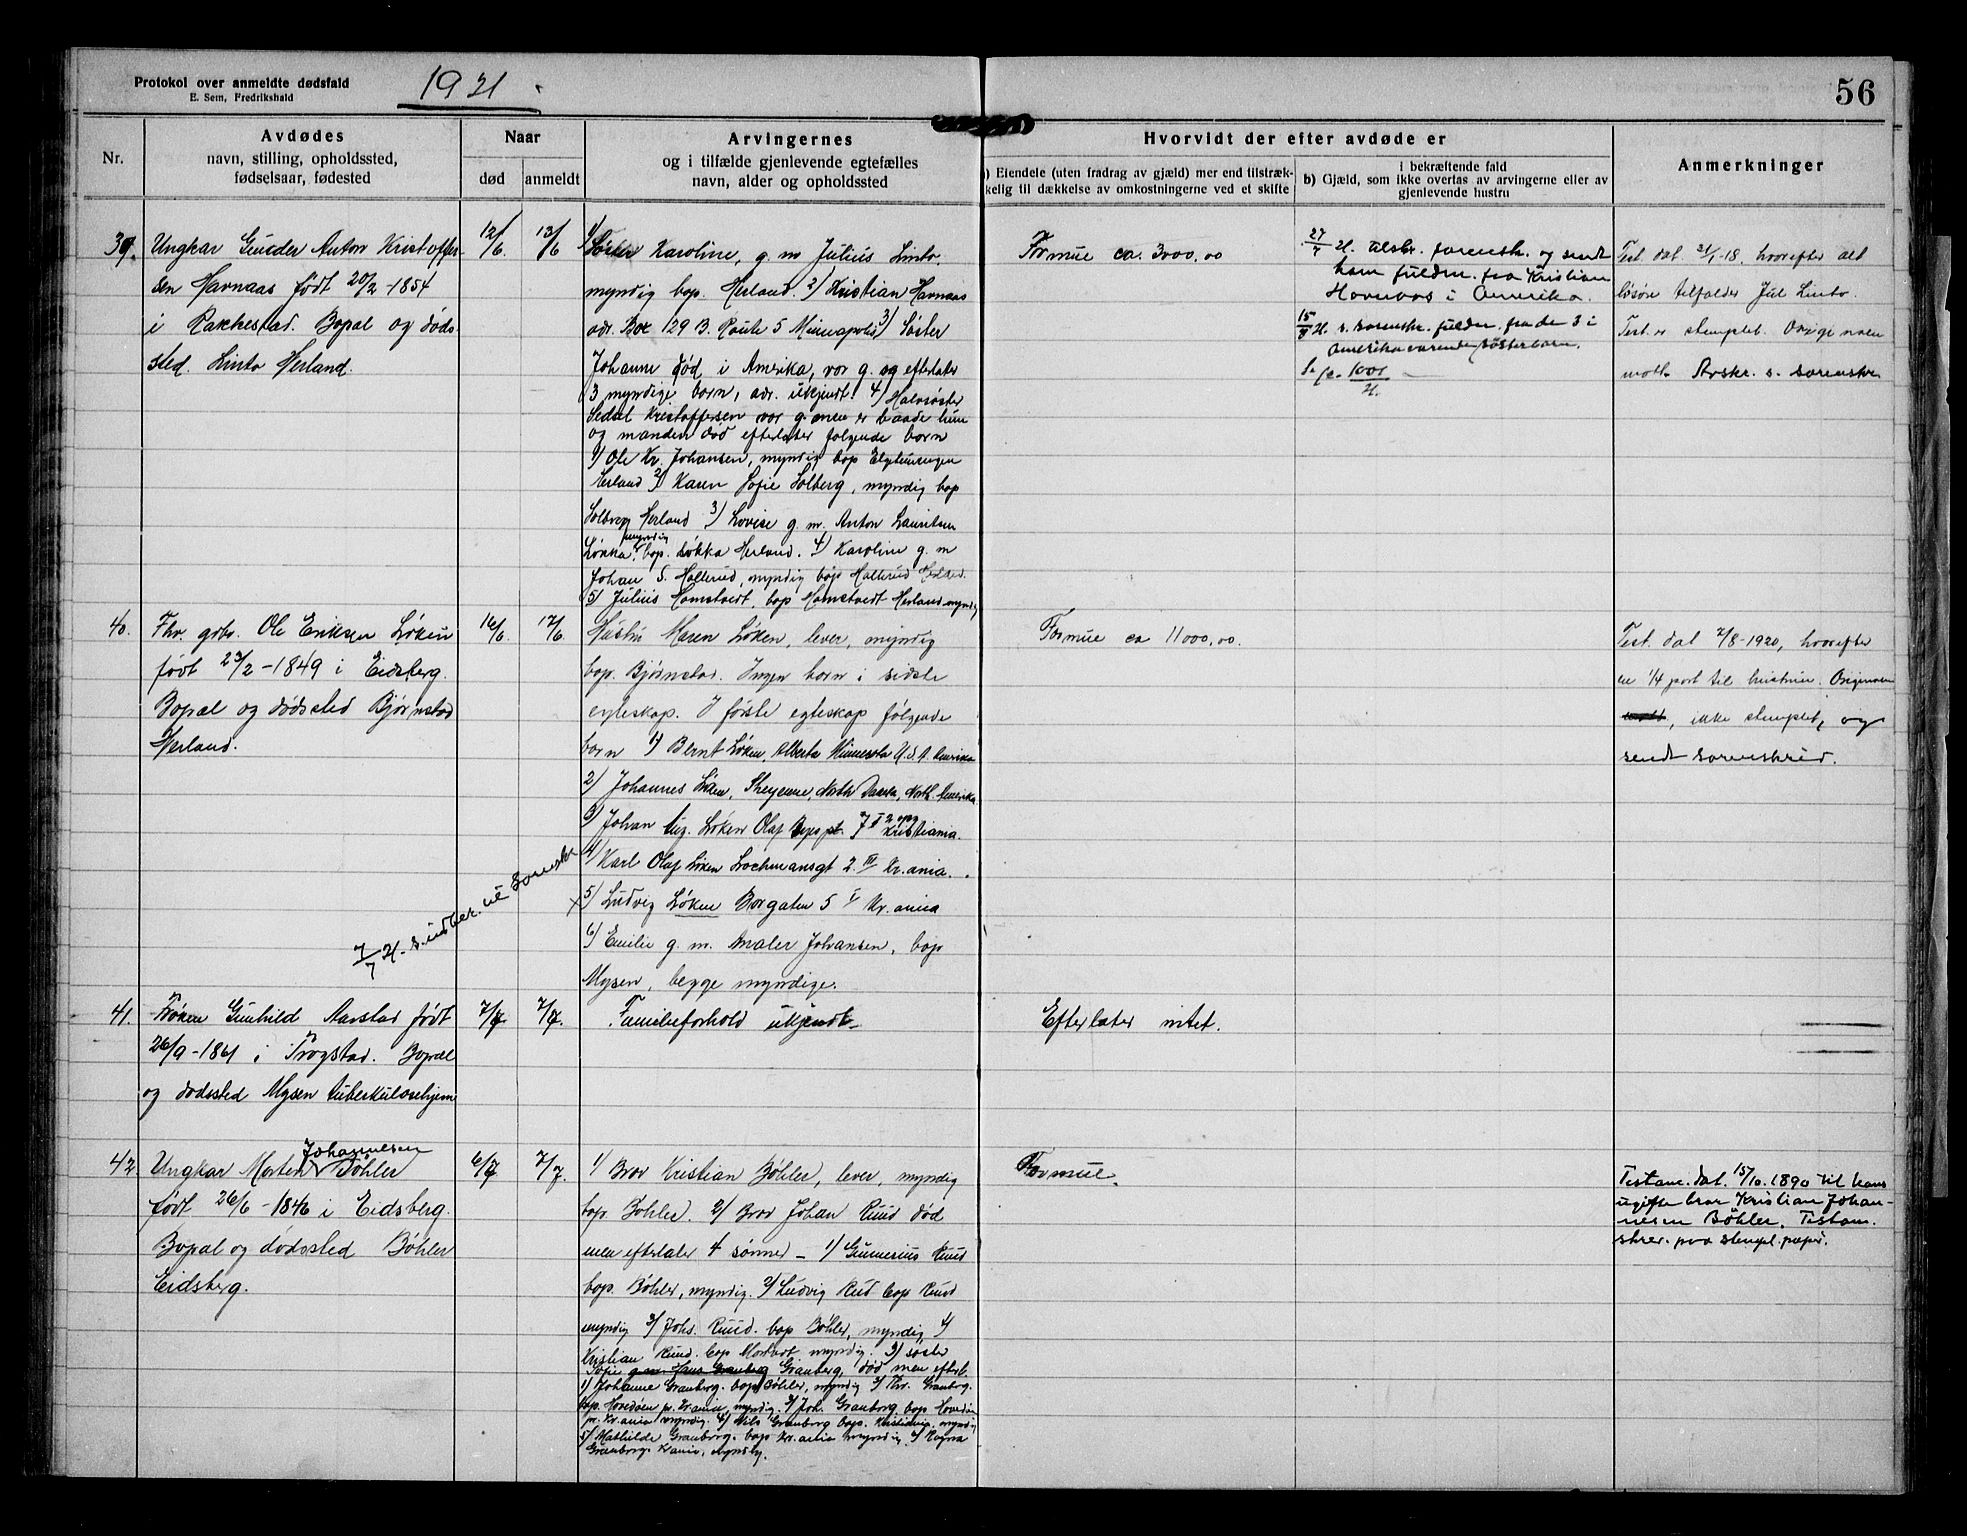 Protokol over anmeldte dødsfald
E. Sem, Fredrikshald
1921.
56
Nr.
Avdødes
navn, stilling, opholdssted,
fødselsaar, fødested
Naar
død
anmeldt
Arvingernes
og i tilfælde gjenlevende egtefælles
navn, alder og opholdssted
Hvorvidt der efter avdøde er
a) Eiendele (uten fradrag av gjæld) mer end tilstræk-
kelig til dækkelse av omkostningerne ved et skifte
i bekræftende fald
b) Gjæld, som ikke overtas av arvingerne eller av
gjenlevende hustru
Anmerkninger
39.
Ungkar Gunder Anton Kristoffer-
sen Havnaas født 20/2-1854
i Rakkestad. Bopæl og døds-
sted. Linto Herland.
12/6.
13/6
1) Søster Karoline, g. m Julius Linto
myndig bop. Herland. 2) Kristian Havnaas
adr. Box 129 B. Route 5 Minneapolis 3) Søster
Johanne død i Amerika, var g. og efterlater
3 myndige barn, adr. ukjendt. 4) Halvsøster
Kristoffersen var g. men er baade hun
og manden død efterlater følgende barn
1) Ole Kr. Johansen, myndig bop
Herland 2) Karen Sofie Solberg, myndig bop
Solberg Herland 3) Lovise g. m. Anton Lauritsen
Løkka, myndig bop. Løkka Herland. 4) Karoline g. m
Johan S. Hallerud, myndig bop Hallerud Herland.
5) Julius Homstvedt, bop Homstvedt Herland myndig
Formue ca. 3000,00
27/7 21. avskr. sorenskr. og sendt
ham fuldm. fra Kristian
Havnaas i Amerika.
15/8 21 s. sorenskr. fuldm. fra de 3 i
Amerika værende søsterbarn.
Test. dat. 21/1-18, hvorefter alt
løsøre tilfalder Jul Linto.
Test. er stemplet. Originalen
mott. Avskr. s. sorenskr
40.
Fhv. gdbr. Ole Eriksen Løken
født 23/2-1849 i Eidsberg.
Bopæl og dødssted Bjørnstad
Herland.
16/6.
17/6
Hustru Maren Løken, lever, myndig
bop. Bjørnstad. Ingen barn i sidste
egteskap. I første egteskap følgende
barn 1) Bernt Løken, Alberta Minnesota U.S.A. Amerika
2) Johannes Løken, Sheyenne, North Dakota, North Amerika
3) Johan Aug. Løken Olaf Ryes pl. 7 I 2 opg Kristiania.
4) Karl Olaf Løken Lochmansgt 2. III Kr.ania.
5) Ludvig Løken Borgaten 5 I Kr.ania
6) Emilie g. m. Maler Johansen, bop
Mysen, begge myndige.
7/7 21. s. indber. til Sorenskr
Formue ca 11 000,00.
Test. dat 2/8-1920, hvorefter
en 1/4 part til hustruen. Originalen
mott, ikke stemplet, og
sendt sorenskriv.
41.
Frøken Gunhild Aarstad født
26/9-1861 i Trøgstad. Bopæl
og dødssted Mysen tuberkulosehjem
7/7.
7/7.
Familieforhold ukjendt
Efterlater intet.
42
Ungkar Morten Johannesen Bøhler
født 26/6-1846 i Eidsberg.
Bopæl og dødssted Bøhler
Eidsberg.
6/7
7/7.
1) Bror Kristian Bøhler, lever, myndig
bop. Bøhler. 2) Bror Johan Ruud død
men efterlater 4 sønner - 1) Gunnerius Ruud
bop. Bøhler, myndig. 2) Ludvig Rud bop Ruud
myndig 3) Johs. Ruud. bop Bøhler, myndig, 4)
Kristian Ruud. bop Mortvedt myndig. 3) søster
Sofie g. m. Hans Granberg Granberg, død men efterl.
1) Johanne Granberg. bop Bøhler, myndig 2) Kr. Granberg.
bop. Hovedøen pr. Kr.ania, myndig. 3) Joh. Granberg bop Hovedøen
pr. Kr.ania myndig. 4) Nils Granberg bop. myndig
5) Mathilde Granberg. bop Kr.ania myndig. 6) Ragna
Granberg. Kr.ania, myndig.
Formue.
Testam. dat. 15/10. 1890 til hans
ugifte bror Kristian Johan-
nesen Bøhler. Testam.
skrev. paa stempl. papir.